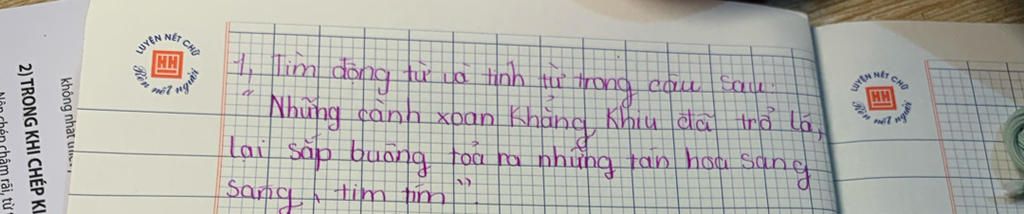 LUYỆN NÉT CHỮ
HH
Rèn nết người
1, Tìm động từ và tính từ trong câu sau:
" Những cành xoan khẳng khiu đã trổ lá,
lại sắp buông toả ra những tán hoa sang
sáng, tim tím ".
LUYỆN NÉT CHỮ
HH
nết người
không nhất
2) TRONG KHI CHÉP KI
Nên chép chậm rãi, từ